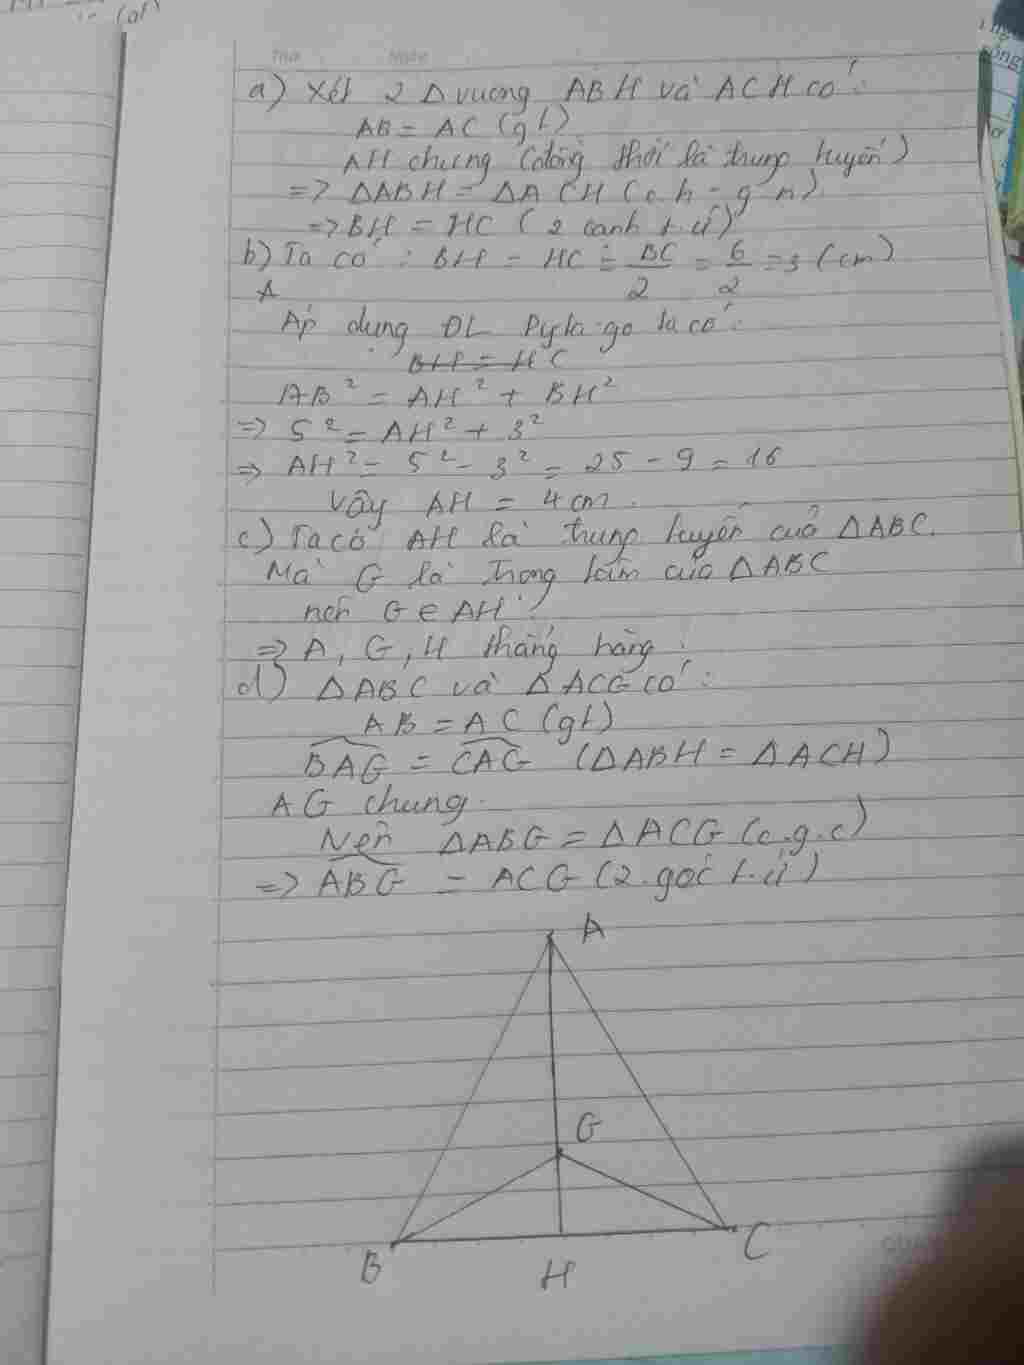 a) Xét 2 Δ vuông ABH và ACH có:
AB = AC (gt)
AH chung (đồng thời là trung tuyến)
=> ΔABH = ΔACH (c.h - g n)
=> BH = HC (2 cạnh t.ứ)
b) Ta có: BH = HC = BC/2 = 6/2 = 3 (cm)
A
Áp dụng ĐL Pyta-go ta có:
BH = HC
AB² = AH² + BH²
=> 5² = AH² + 3²
=> AH² = 5² - 3² = 25 - 9 = 16
Vậy AH = 4 cm.
c) Ta có AH là trung tuyến của ΔABC.
Mà G là trọng tâm của ΔABC
nên G ∈ AH
=> A, G, H thẳng hàng.
d) ΔABC và ΔACG có:
AB = AC (gt)
BAG = CAG (ΔABH = ΔACH)
AG chung.
Nên ΔABG = ΔACG (c.g.c)
=> ABG = ACG (2 góc t.ứ)
A
G
B
H
C